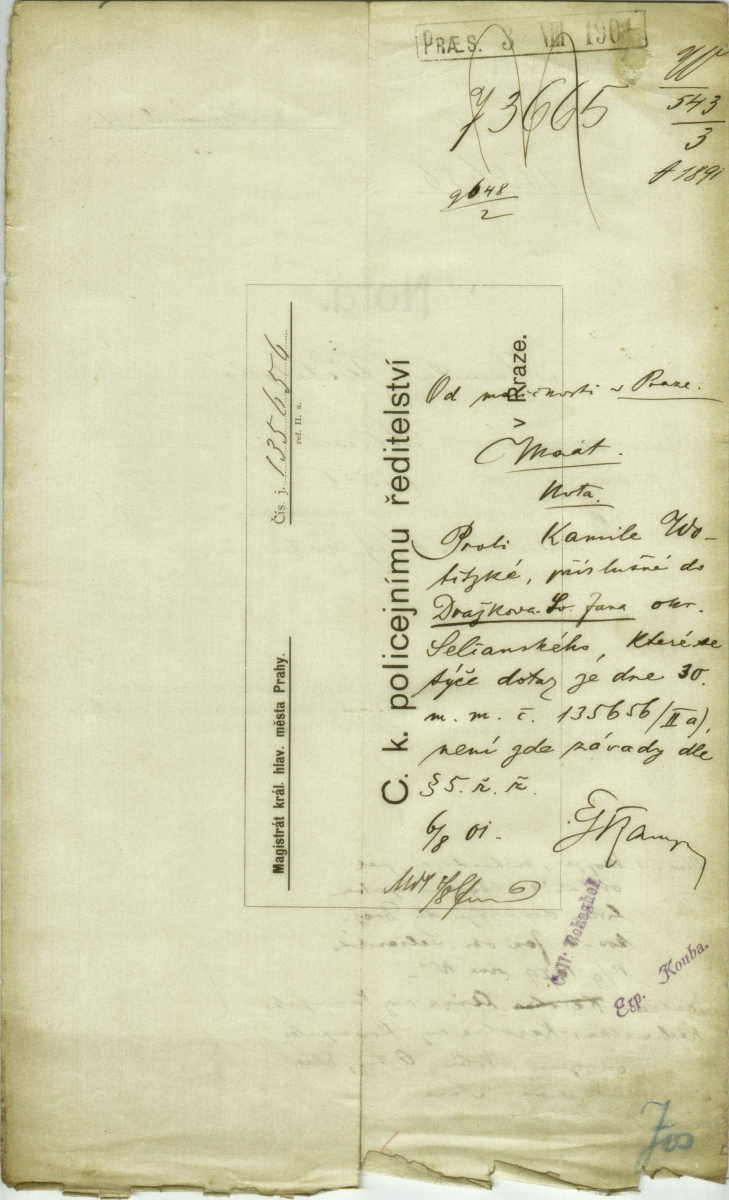 PRÆS. 3 VIII 1901
73665
543
3
A 1891
9648
2
Čís. j. 135656
ref. II. a.
Magistrát král. hlav. města Prahy.
C. k. policejnímu ředitelství
v Praze.
Od v Praze.
Nota.
Proti Kamile Wo-
titzké, příslušné do
Dražkova-Sv. Jana okr.
Selčanského, které se
týče dotaz je dne 30.
m. m. č. 135656/II a),
není zde závady dle
§ 5. ž. ř.
6/8 01.
Coll.
Exp. Kouba.